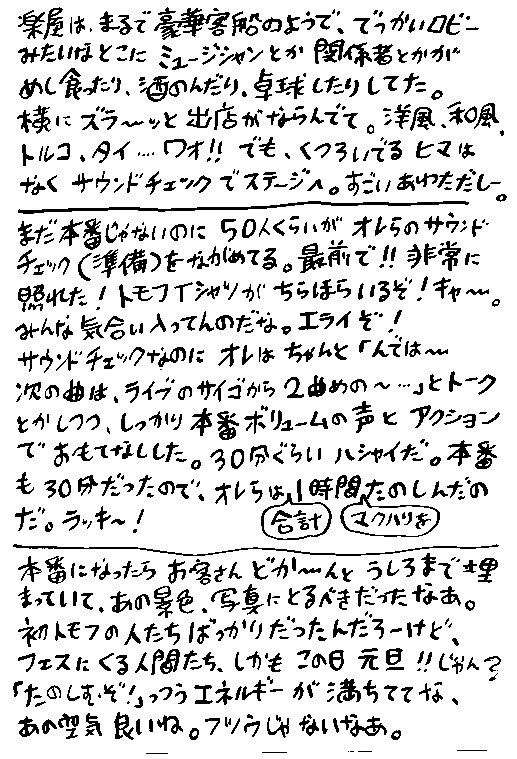 楽屋は、まるで豪華客船のようで、でっかいロビー
みたいなとこに ミュージシャンとか 関係者とかが
めし食ったり、酒のんだり、卓球したりしてた。
横に ズラ〜ッと 出店がならんでて。洋風、和風、
トルコ、タイ…ワオ!! でも、くつろいでる ヒマは
なく サウンドチェックで ステージへ。すごい あわただしー。
まだ本番じゃないのに 50人くらいが オレらのサウンド
チェック(準備)をながめてる。最前で!! 非常に
照れた! トモフTシャツが ちらほらいるぞ! キャ〜。
みんな気合い入ってんのだな。エライぞ!
サウンドチェックなのに オレは ちゃんと「んでは〜
次の曲は、ライブのサイゴから 2曲めの〜…」とトーク
とかしつつ、しっかり 本番ボリュームの声と アクション
で おもてなしした。30分ぐらい ハシャイだ。本番
も 30分だったので、オレらは 1時間 たのしんだの
だ。ラッキ〜!
合計 マクハリを
本番になったら お客さん どか〜んと うしろまで 埋
まっていて、あの景色、写真にとるべきだったなあ。
初トモフの人たち ばっかりだったんだろーけど、
フェスにくる人間たち、しかも この日 元旦!! じゃん?
「たのしむぞ!」っつう エネルギーが 満ちててな、
あの空気 良いね。フツウじゃないなあ。